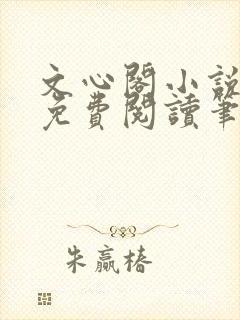 文心閣小說
免費閱讀筆
朱贏椿